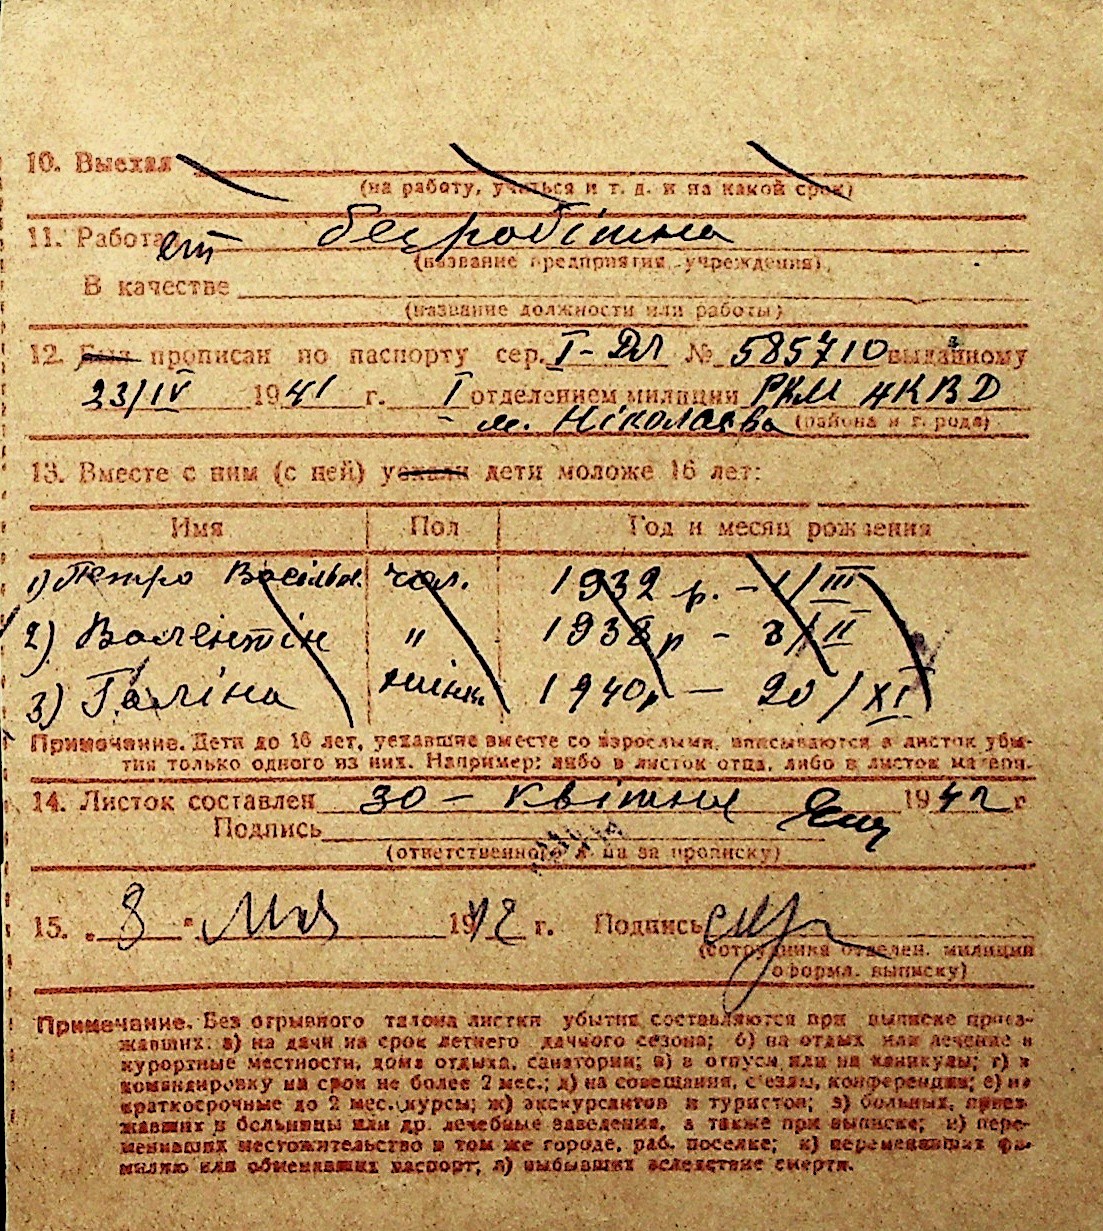 10. Выехал
(на работу, учиться и т. д. и на какой срок)
11. Работает безробітна
(название предприятия, учреждения)
В качестве
(название должности или работы)
12. Был прописан по паспорту сер. I-ДЛ № 585710 выданному
23/IV 1941 г. I отделением милиции РКМ НКВД
м. Ніколаєва (района и города)
13. Вместе с ним (с ней) уехали дети моложе 16 лет:
Имя Пол Год и месяц рождения
1) Петро Васильв. чол. 1932 р. - 1/III
2) Валентін " 1938 р - 8/II
3) Галіна жінк. 1940 р - 20/XI
Примечание. Дети до 16 лет, уехавшие вместе со взрослыми, вписываются в листок убы-
тия только одного из них. Например: либо в листок отца, либо в листок матери.
14. Листок составлен 30 - квітня 1942 г
Подпись
(ответственного за прописку)
15. „8" Мая 1942 г. Подпись
(сотрудника отделен. милиции
оформл. выписку)
Примечание. Без отрывного талона листки убытия составляются при выписке приез-
жавших: а) на дачи на срок летнего дачного сезона; б) на отдых или лечение в
курортные местности, дома отдыха, санатории; в) в отпуск или на каникулы; г) в
командировку на срок не более 2 мес.; д) на совещания, съезды, конференции; е) на
краткосрочные до 2 мес. курсы; ж) экскурсантов и туристов; з) больных, приез-
жавших в больницы или др. лечебные заведения, а также при выписке; и) пере-
менивших местожительство в том же городе, раб. поселке; к) переменивших фа-
милию или обменявших паспорт; л) выбывших вследствие смерти.